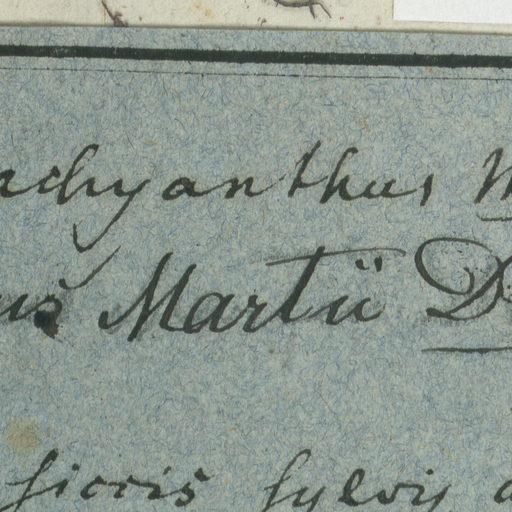 achyanthus
Martii D
siccis sylvis